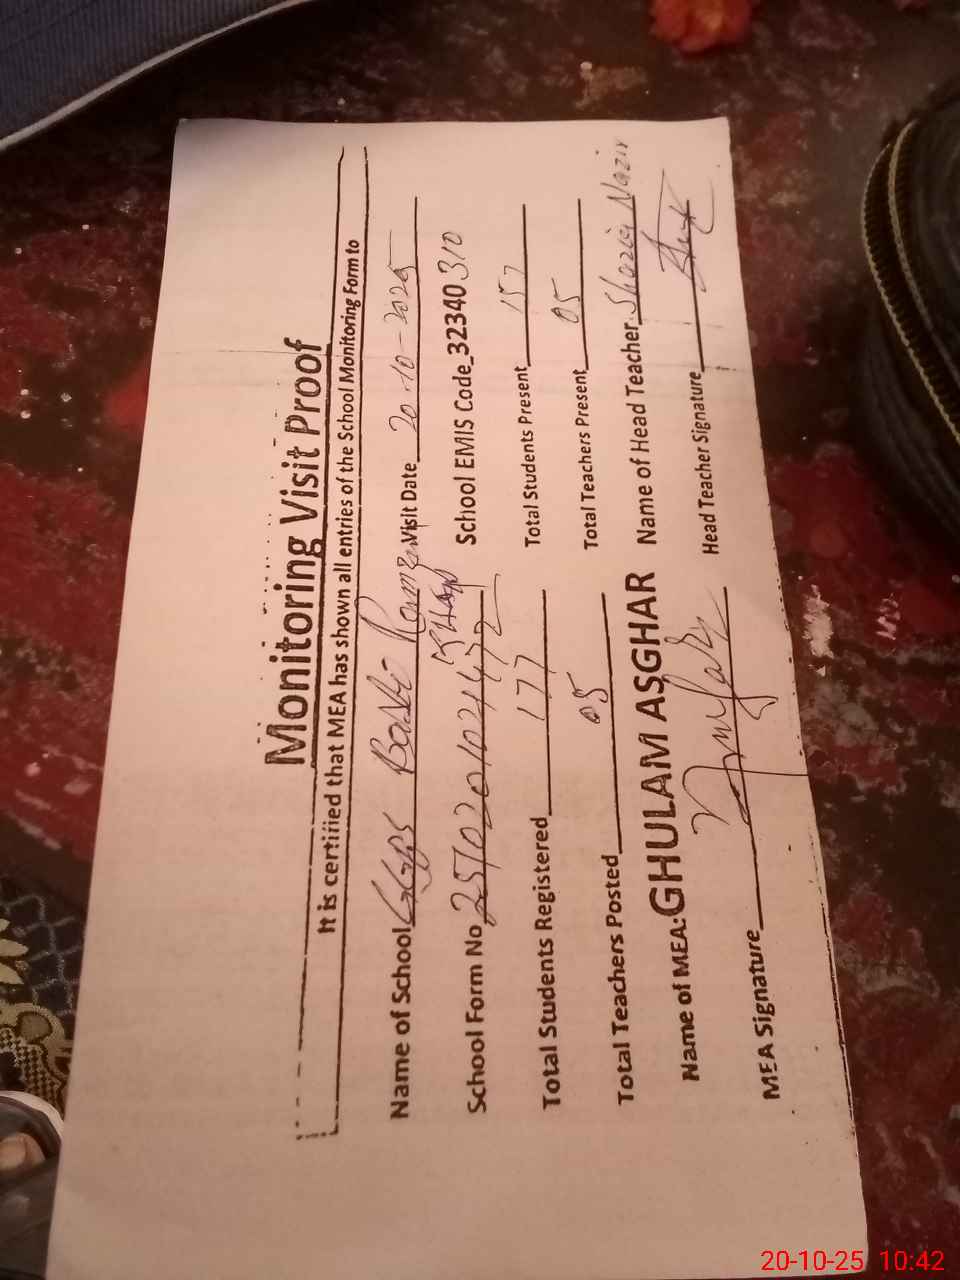 Monitoring Visit Proof
It is certified that MEA has shown all entries of the School Monitoring Form to
Name of School GGPS Basti Visit Date 20-10-2025
Khan
School Form No School EMIS Code_32340310
Total Students Registered 177 Total Students Present 157
Total Teachers Posted 05 Total Teachers Present 05
Name of MEA: GHULAM ASGHAR Name of Head Teacher Shazia Nazir
MEA Signature Head Teacher Signature
20-10-25 10:42